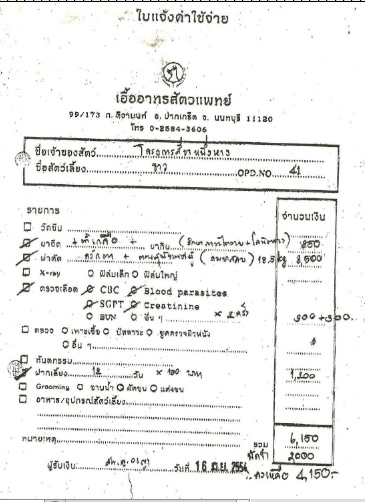 ใบแจ้งค่าใช้จ่าย
เอื้ออาทรสัตวแพทย์
99/173 ถ. ติวานนท์ อ. ปากเกร็ด จ. นนทบุรี 11120
โทร 0-2584-3606
ชื่อเจ้าของสัตว์
ชื่อสัตว์เลี้ยง ขาว OPD.NO 41
รายการ จำนวนเงิน
วัคซีน
ยาฉีด + น้ำเกลือ + ยากิน 850
ผ่าตัด 18.5 kg
X-ray ฟิล์มเล็ก ฟิล์มใหญ่
ตรวจเลือด CBC Blood parasites
SGPT Creatinine
BUN อื่น ๆ x 2 ครั้ง 300+300
ตรวจ เพาะเชื้อ ปัสสาวะ ขูดตรวจผิวหนัง
อื่น ๆ
ทันตกรรม
ฝากเลี้ยง 12 วัน x 100 บาท 1,200
Grooming อาบน้ำ ตัดขน แต่งขน
อาหาร/อุปกรณ์สัตว์เลี้ยง
หมายเหตุ รวม 6,150
มัดจำ 2000
ผู้รับเงิน วันที่ 16 เม.ย. 2554 คงเหลือ 4,150.-